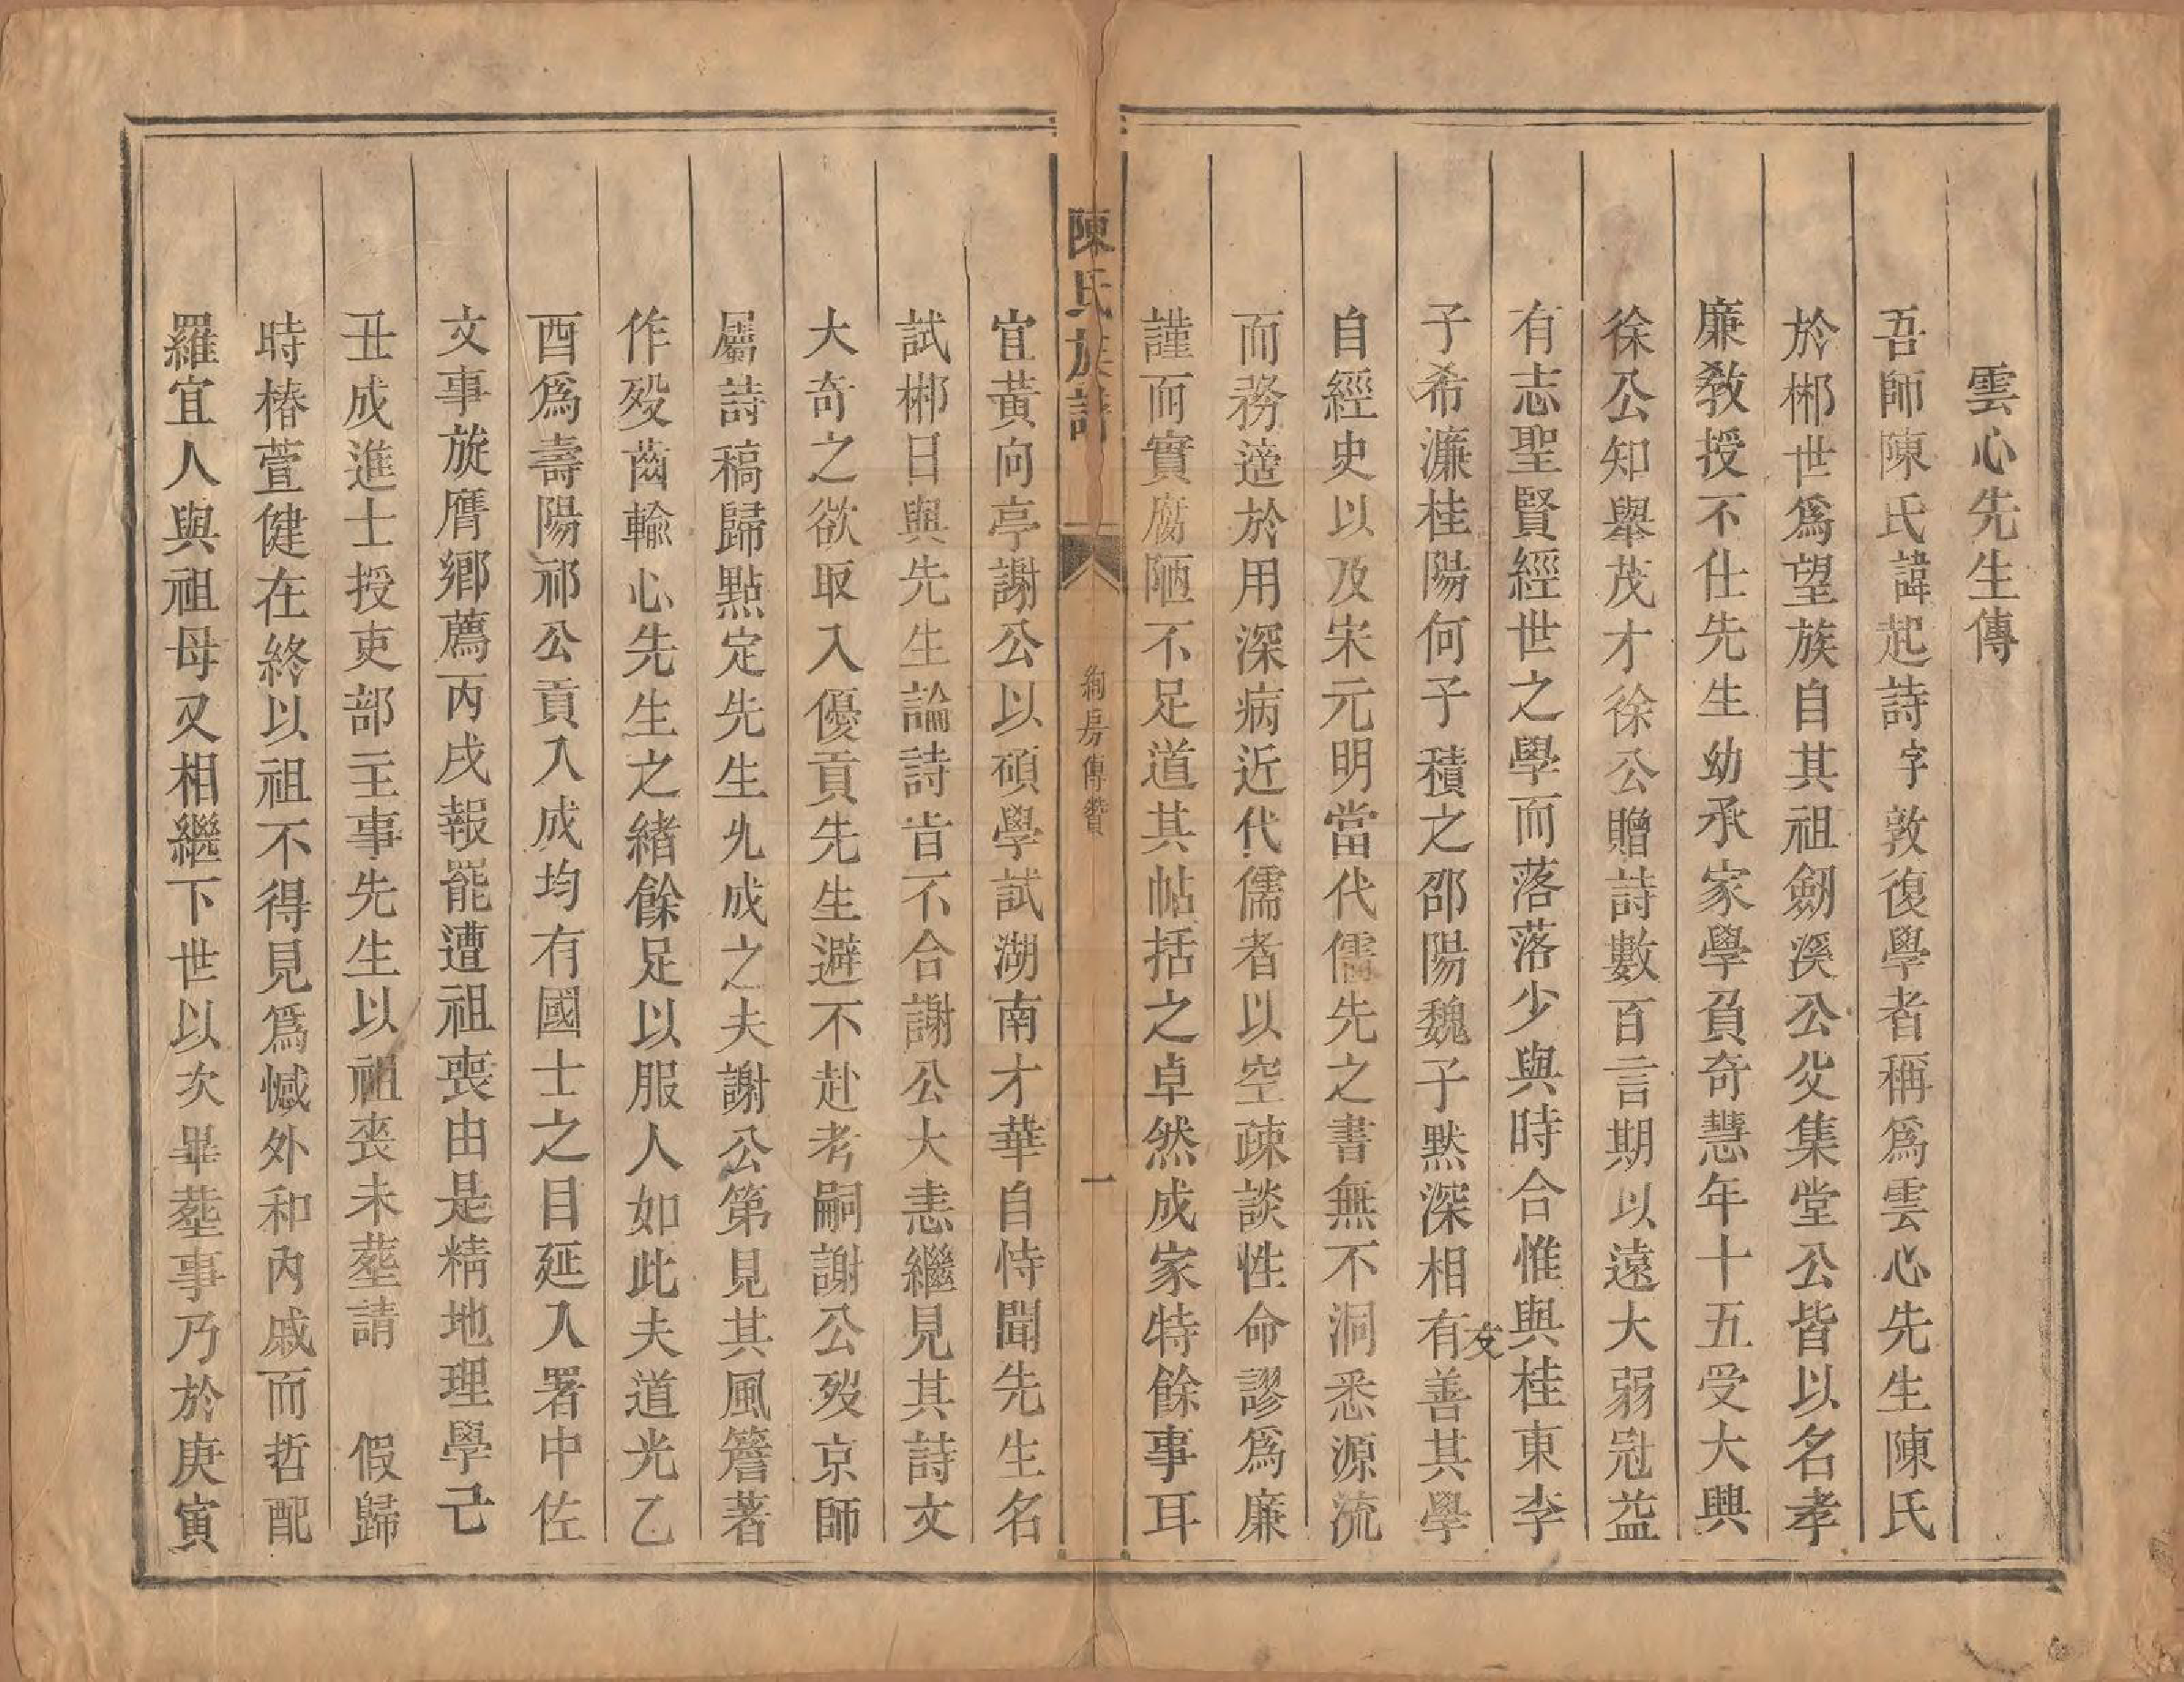 雲心先生傳
吾師陳氏諱起詩字敦復學者稱爲雲心先生陳氏
於郴世爲望族自其祖劒溪公父集堂公皆以名孝
廉教授不仕先生幼承家學負奇慧年十五受大興
徐公知舉茂才徐公贈詩數百言期以遠大弱冠益
有志聖賢經世之學而落落少與時合惟與桂東李
子希濂桂陽何子積之邵陽魏子默深相有善其學
友
自經史以及宋元明當代儒先之書無不洞悉源流
而務適於用深病近代儒者以空疎談性命謬爲廉
謹而實腐陋不足道其帖括之卓然成家特餘事耳
陳氏族譜
絢房傳贊
一
宜黃向亭謝公以碩學試湖南才華自恃聞先生名
試郴日與先生論詩旨不合謝公大恚繼見其詩文
大奇之欲取入優貢先生避不赴考嗣謝公歿京師
屬詩稿歸點定先生允成之夫謝公第見其風簷著
作歿齒輸心先生之緒餘足以服人如此夫道光乙
酉爲壽陽祁公貢入成均有國士之目延入署中佐
文事旋膺鄉薦丙戌報罷遭祖喪由是精地理學己
丑成進士授吏部主事先生以祖喪未塟請　假歸
時椿萱健在終以祖不得見爲憾外和內戚而哲配
羅宜人與祖母又相繼下世以次畢塟事乃於庚寅